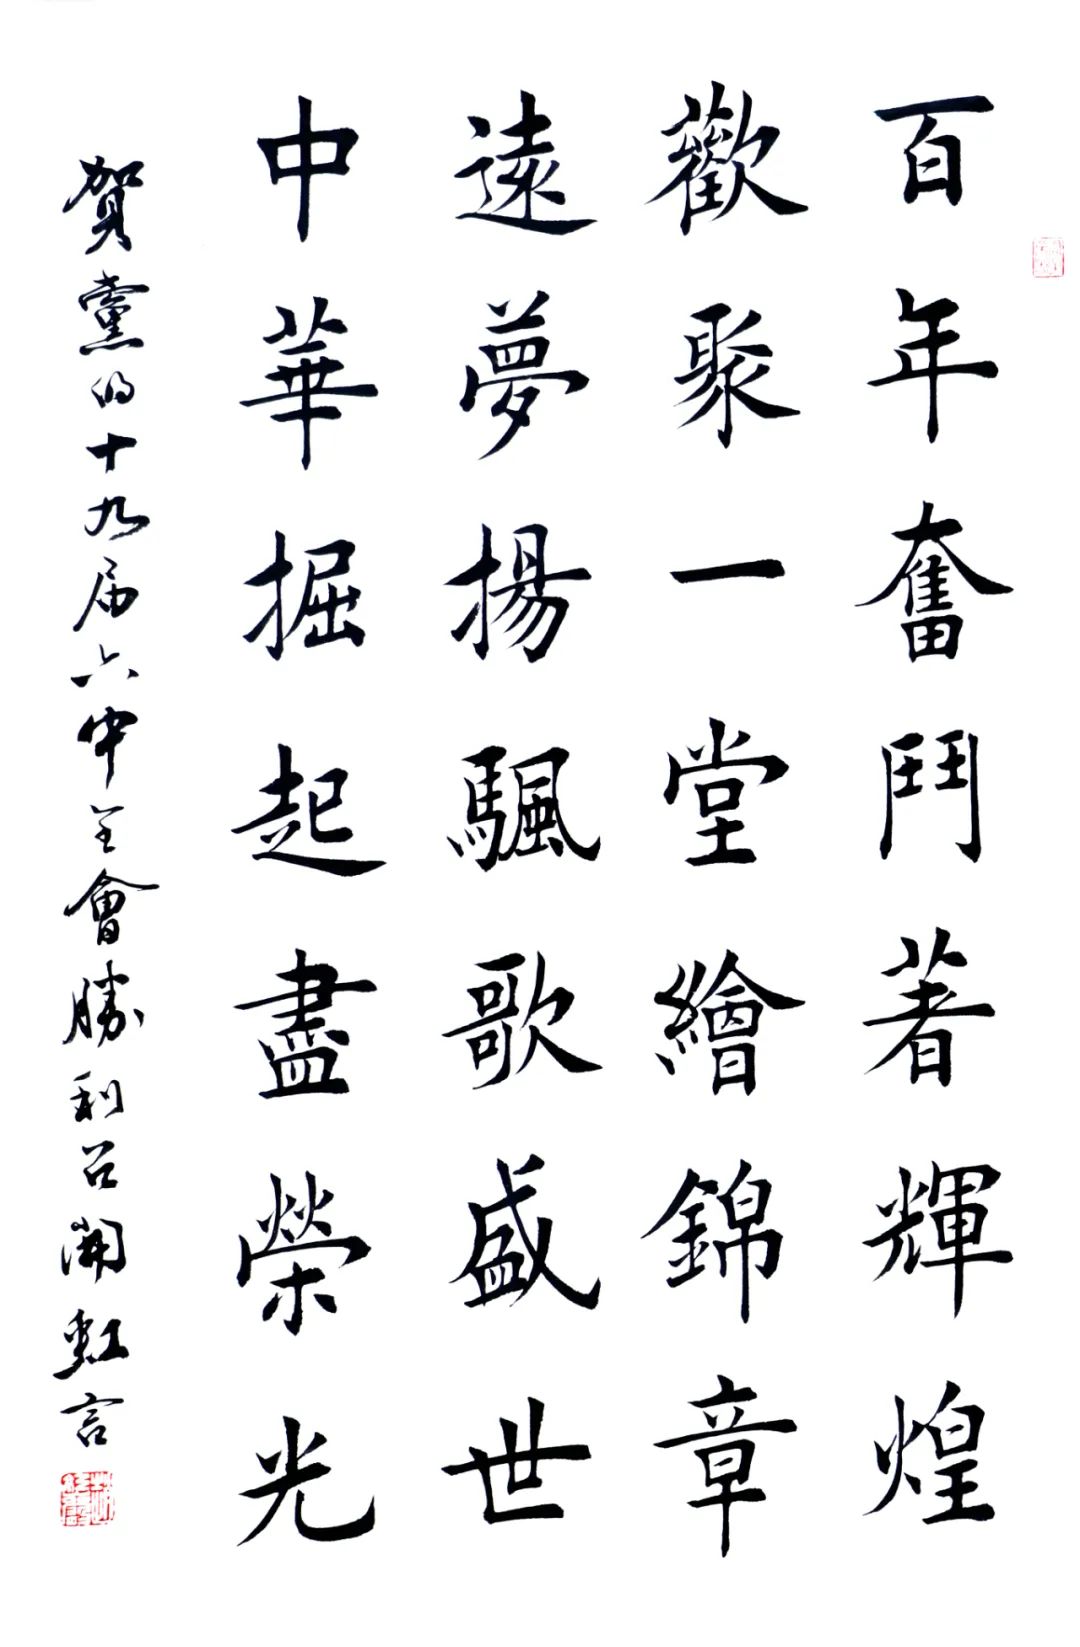 百年奮鬥著輝煌
歡聚一堂繪錦章
遠夢揚颿歌盛世
中華掘起盡榮光
賀黨的十九届六中全會勝利召開虹言